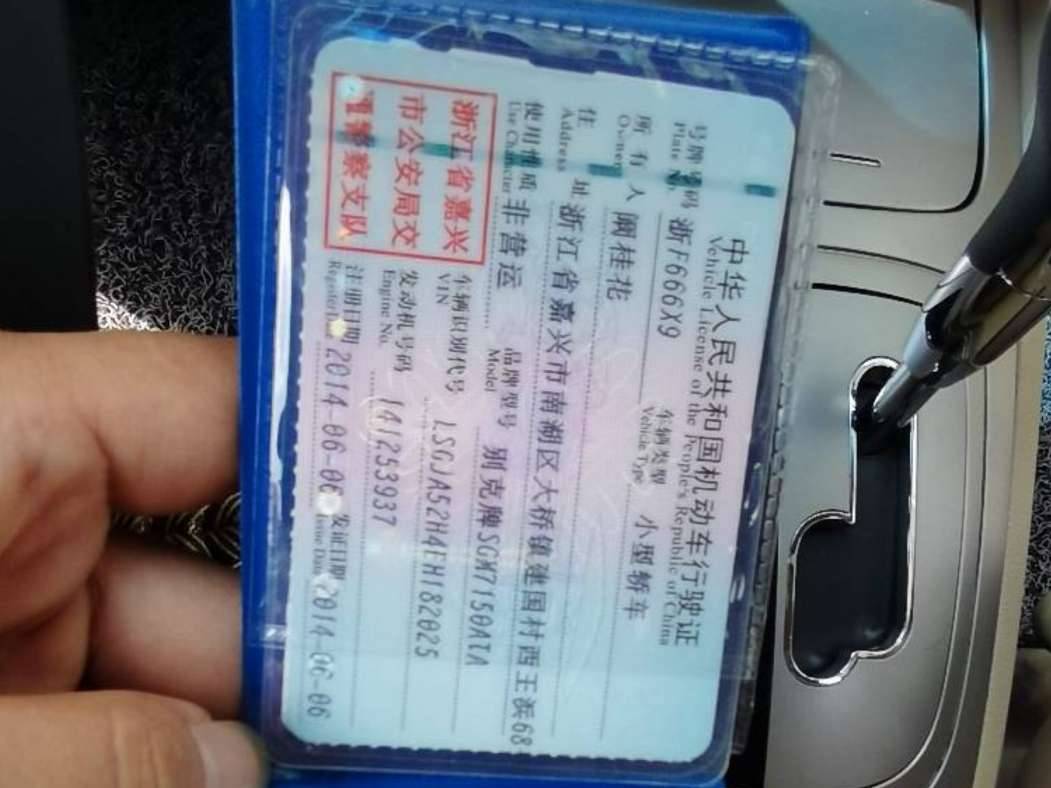 中华人民共和国机动车行驶证
Vehicle License of the People's Republic of China
号牌号码 浙F666X9 车辆类型 小型轿车
Plate No. Vehicle Type
所有人 阚桂花
Owner
住址 浙江省嘉兴市南湖区大桥镇建国村西王浜68
Address
使用性质 非营运 品牌型号 别克牌SGM7150ATA
Use Character Model
浙江省嘉兴
市公安局交
通警察支队
车辆识别代号 LSGJA52H4EH182025
VIN
发动机号码 141253937
Engine No.
注册日期 2014-06-06 发证日期 2014-06-06
Issue Date